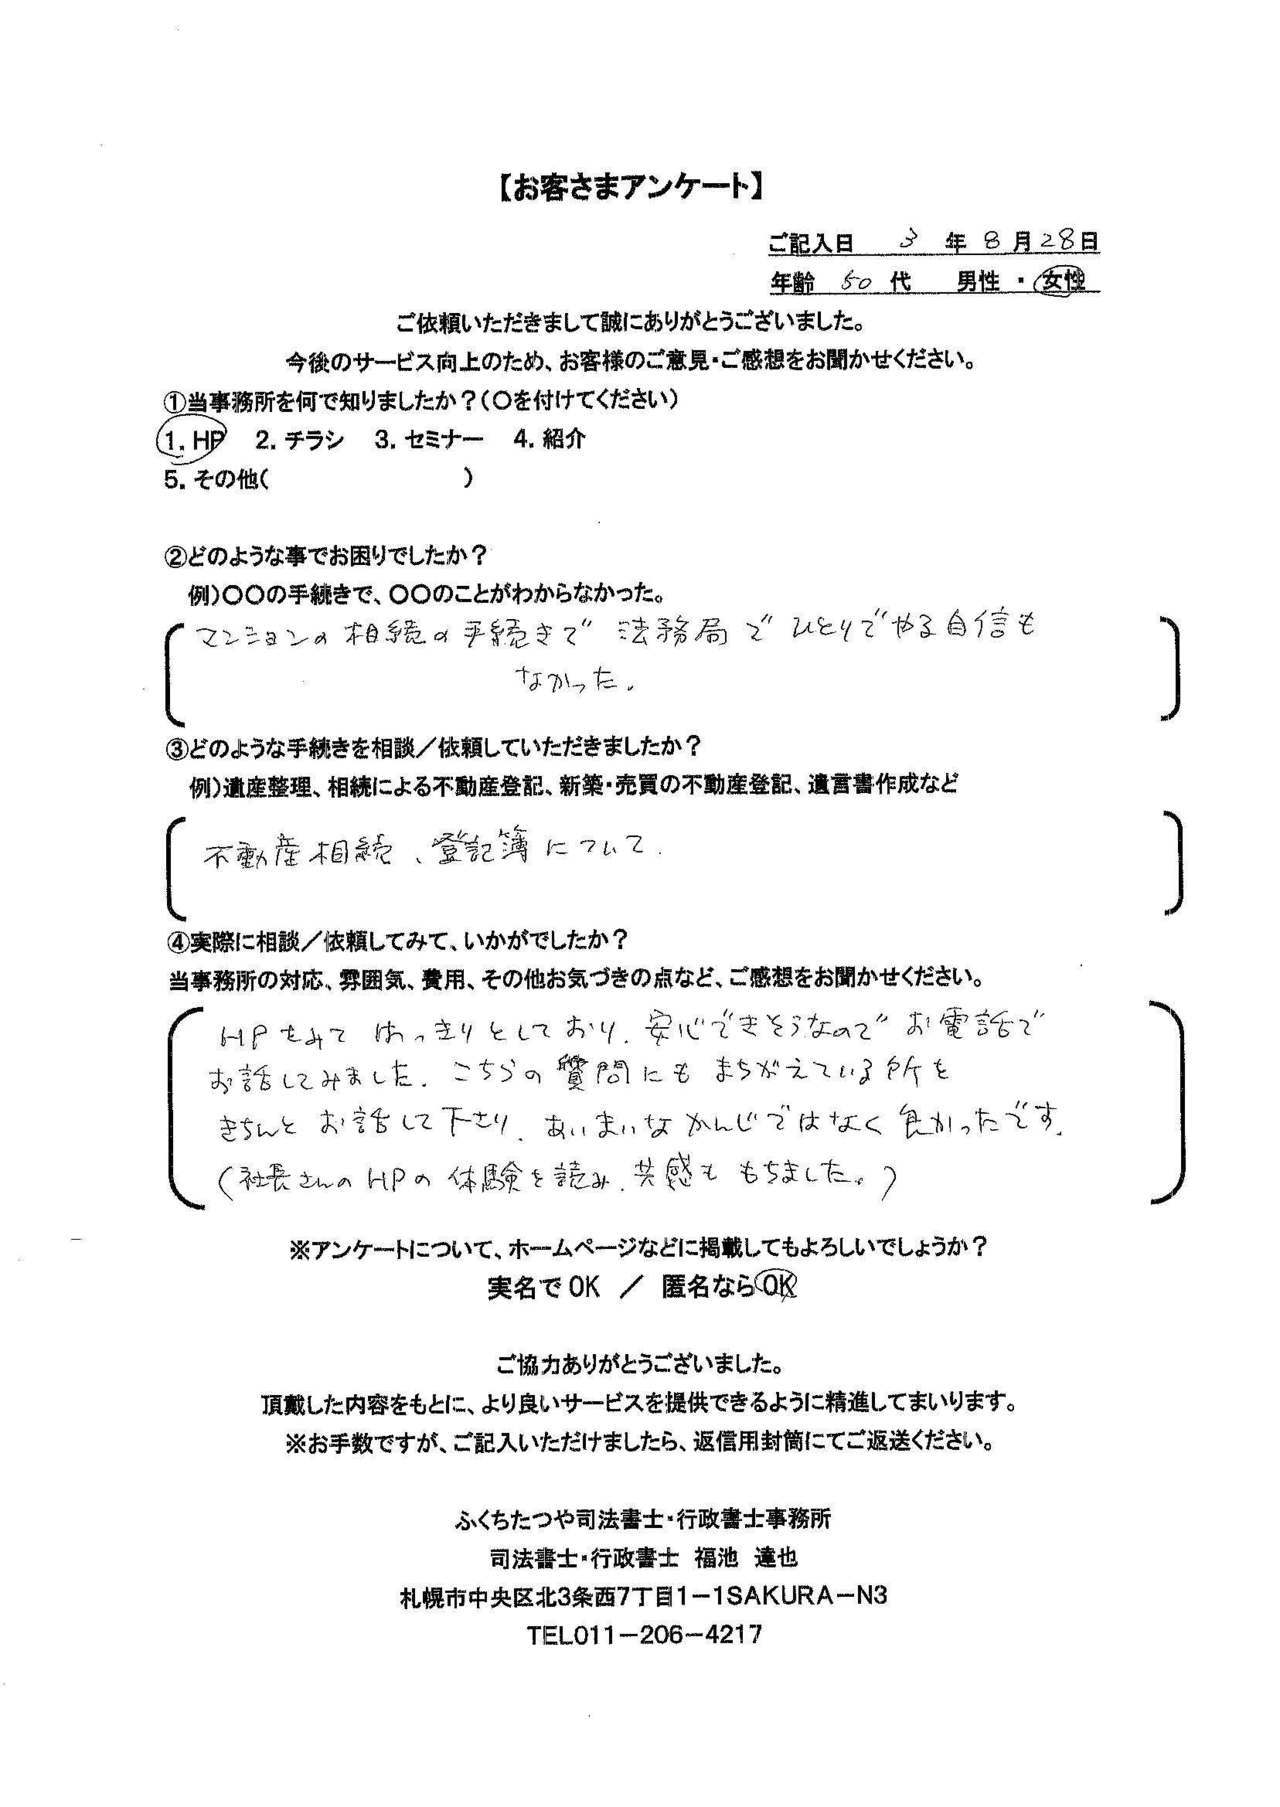 【お客さまアンケート】
ご記入日 3 年 8 月 28 日
年齢 50 代 男性 ・ 女性
ご依頼いただきまして誠にありがとうございました。
今後のサービス向上のため、お客様のご意見・ご感想をお聞かせください。
①当事務所を何で知りましたか？(○を付けてください)
1. HP 2. チラシ 3. セミナー 4. 紹介
5. その他( )
②どのような事でお困りでしたか？
例)○○の手続きで、○○のことがわからなかった。
マンションの相続の手続きで 法務局で ひとりでやる自信も
なかった。
③どのような手続きを相談／依頼していただきましたか？
例)遺産整理、相続による不動産登記、新築・売買の不動産登記、遺言書作成など
不動産相続、登記簿について.
④実際に相談／依頼してみて、いかがでしたか？
当事務所の対応、雰囲気、費用、その他お気づきの点など、ご感想をお聞かせください。
HPをみて はっきりとしており、安心できそうなので お電話で
お話してみました。こちらの質問にも まちがえている所を
きちんと お話して下さり、あいまいなかんじではなく 良かったです。
(社長さんのHPの体験を読み、共感も もちました。)
※アンケートについて、ホームページなどに掲載してもよろしいでしょうか？
実名でOK ／ 匿名ならOK
ご協力ありがとうございました。
頂戴した内容をもとに、より良いサービスを提供できるように精進してまいります。
※お手数ですが、ご記入いただけましたら、返信用封筒にてご返送ください。
ふくちたつや司法書士・行政書士事務所
司法書士・行政書士 福池 達也
札幌市中央区北3条西7丁目1－1SAKURA－N3
TEL011－206－4217